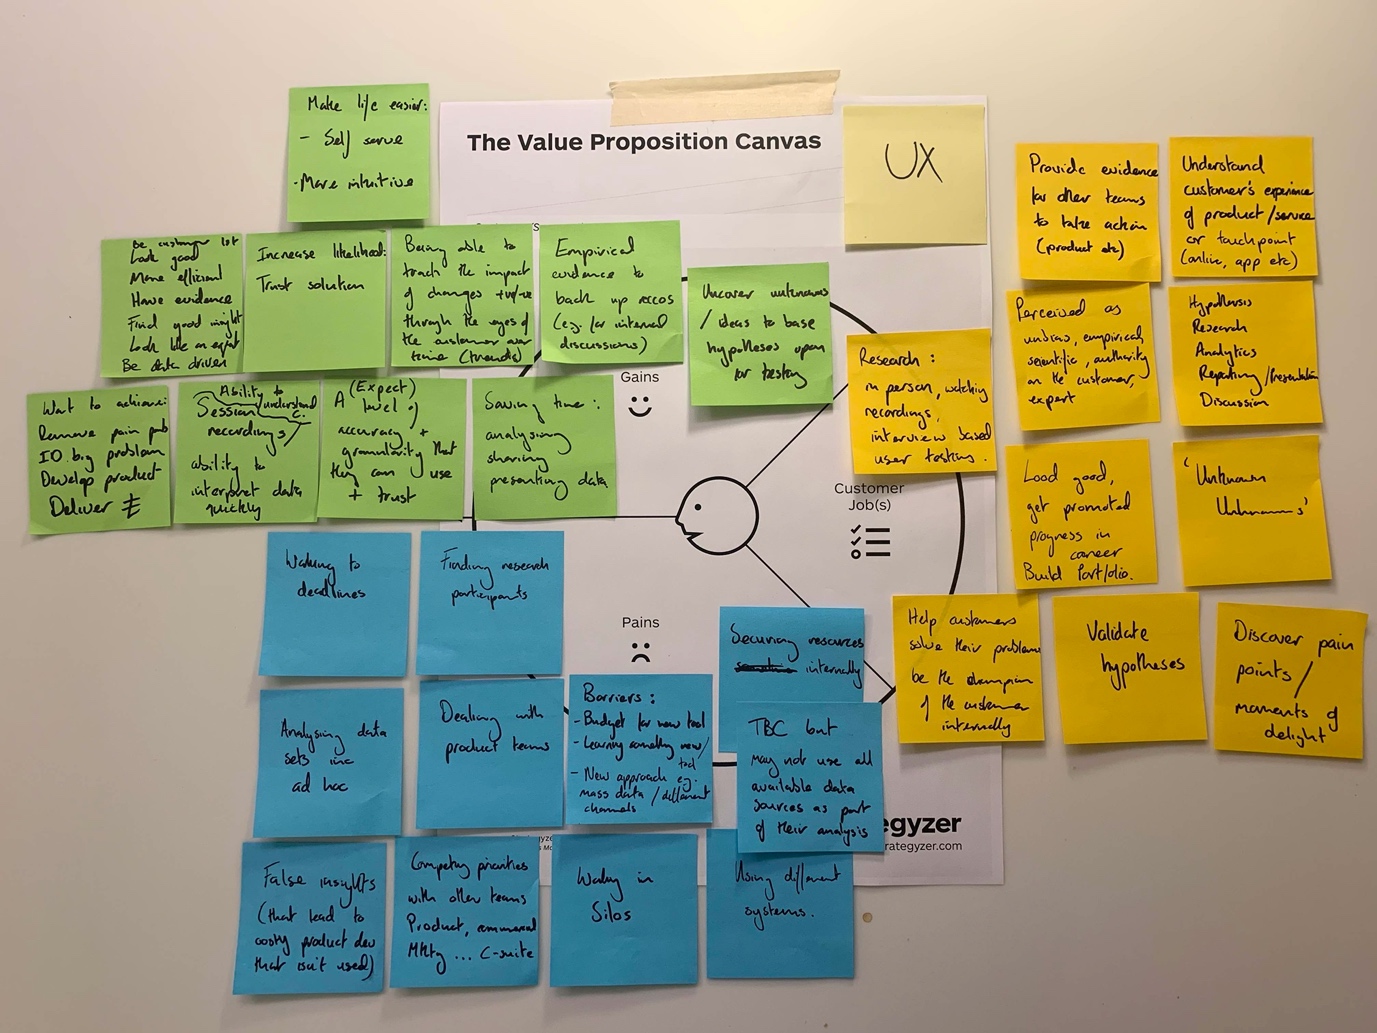 Make life easier:
- Self serve
- More intuitive
The Value Proposition Canvas
UX
Provide evidence
for other teams
to take action
(product etc)
Understand
customer's experience
of product/service
or touchpoint
(online, app etc)
Be customer 1st
Look good
More efficient
Have evidence
Find good insight
Look like an expert
Be data driven
Increase likelihood:
Trust solution
Being able to
track the impact
of changes +ve/-ve
through the eyes of
the customer over
time (trends)
Empirical
evidence to
back up recos
(e.g. for internal
discussions)
Uncover unknowns
/ ideas to base
hypotheses upon
for testing
Perceived as
unbias, empirical,
scientific, authority
on the customer,
expert
Hypothesis
Research
Analytics
Reporting/Presentation
Discussion
Research:
in person, watching
recordings,
interview based
user testing.
Gains
Want to achieve:
Remove pain
ID big problem
Develop product
Deliver £
Ability to
understand
Session
recordings
ability to
interpret data
quickly
(Expect)
A level of
accuracy +
granularity that
they can use
+ trust
Saving time:
analysing
sharing
presenting data
Customer
Job(s)
Lood good,
get promoted
progress in
career
Build Portfolio.
'Unknown
Unknowns'
Working to
deadlines
Finding research
participants
Pains
Securing resources
internally
Help customers
solve their problems
be the champion
of the customer
internally
Validate
hypotheses
Discover pain
points/
moments of
delight
Analysing data
sets inc
ad hoc
Dealing with
product teams
Barriers:
- Budget for new tool
- Learning something new/
tool
- New approach eg.
mass data / different
channels
TBC but
may not use all
available data
sources as part
of their analysis
egyzer
rategyzer.com
False insights
(that lead to
costly product dev
that isn't used)
Competing priorities
with other teams
Product, commercial
Mktg ... C-suite
Working in
Silos
Using different
systems.